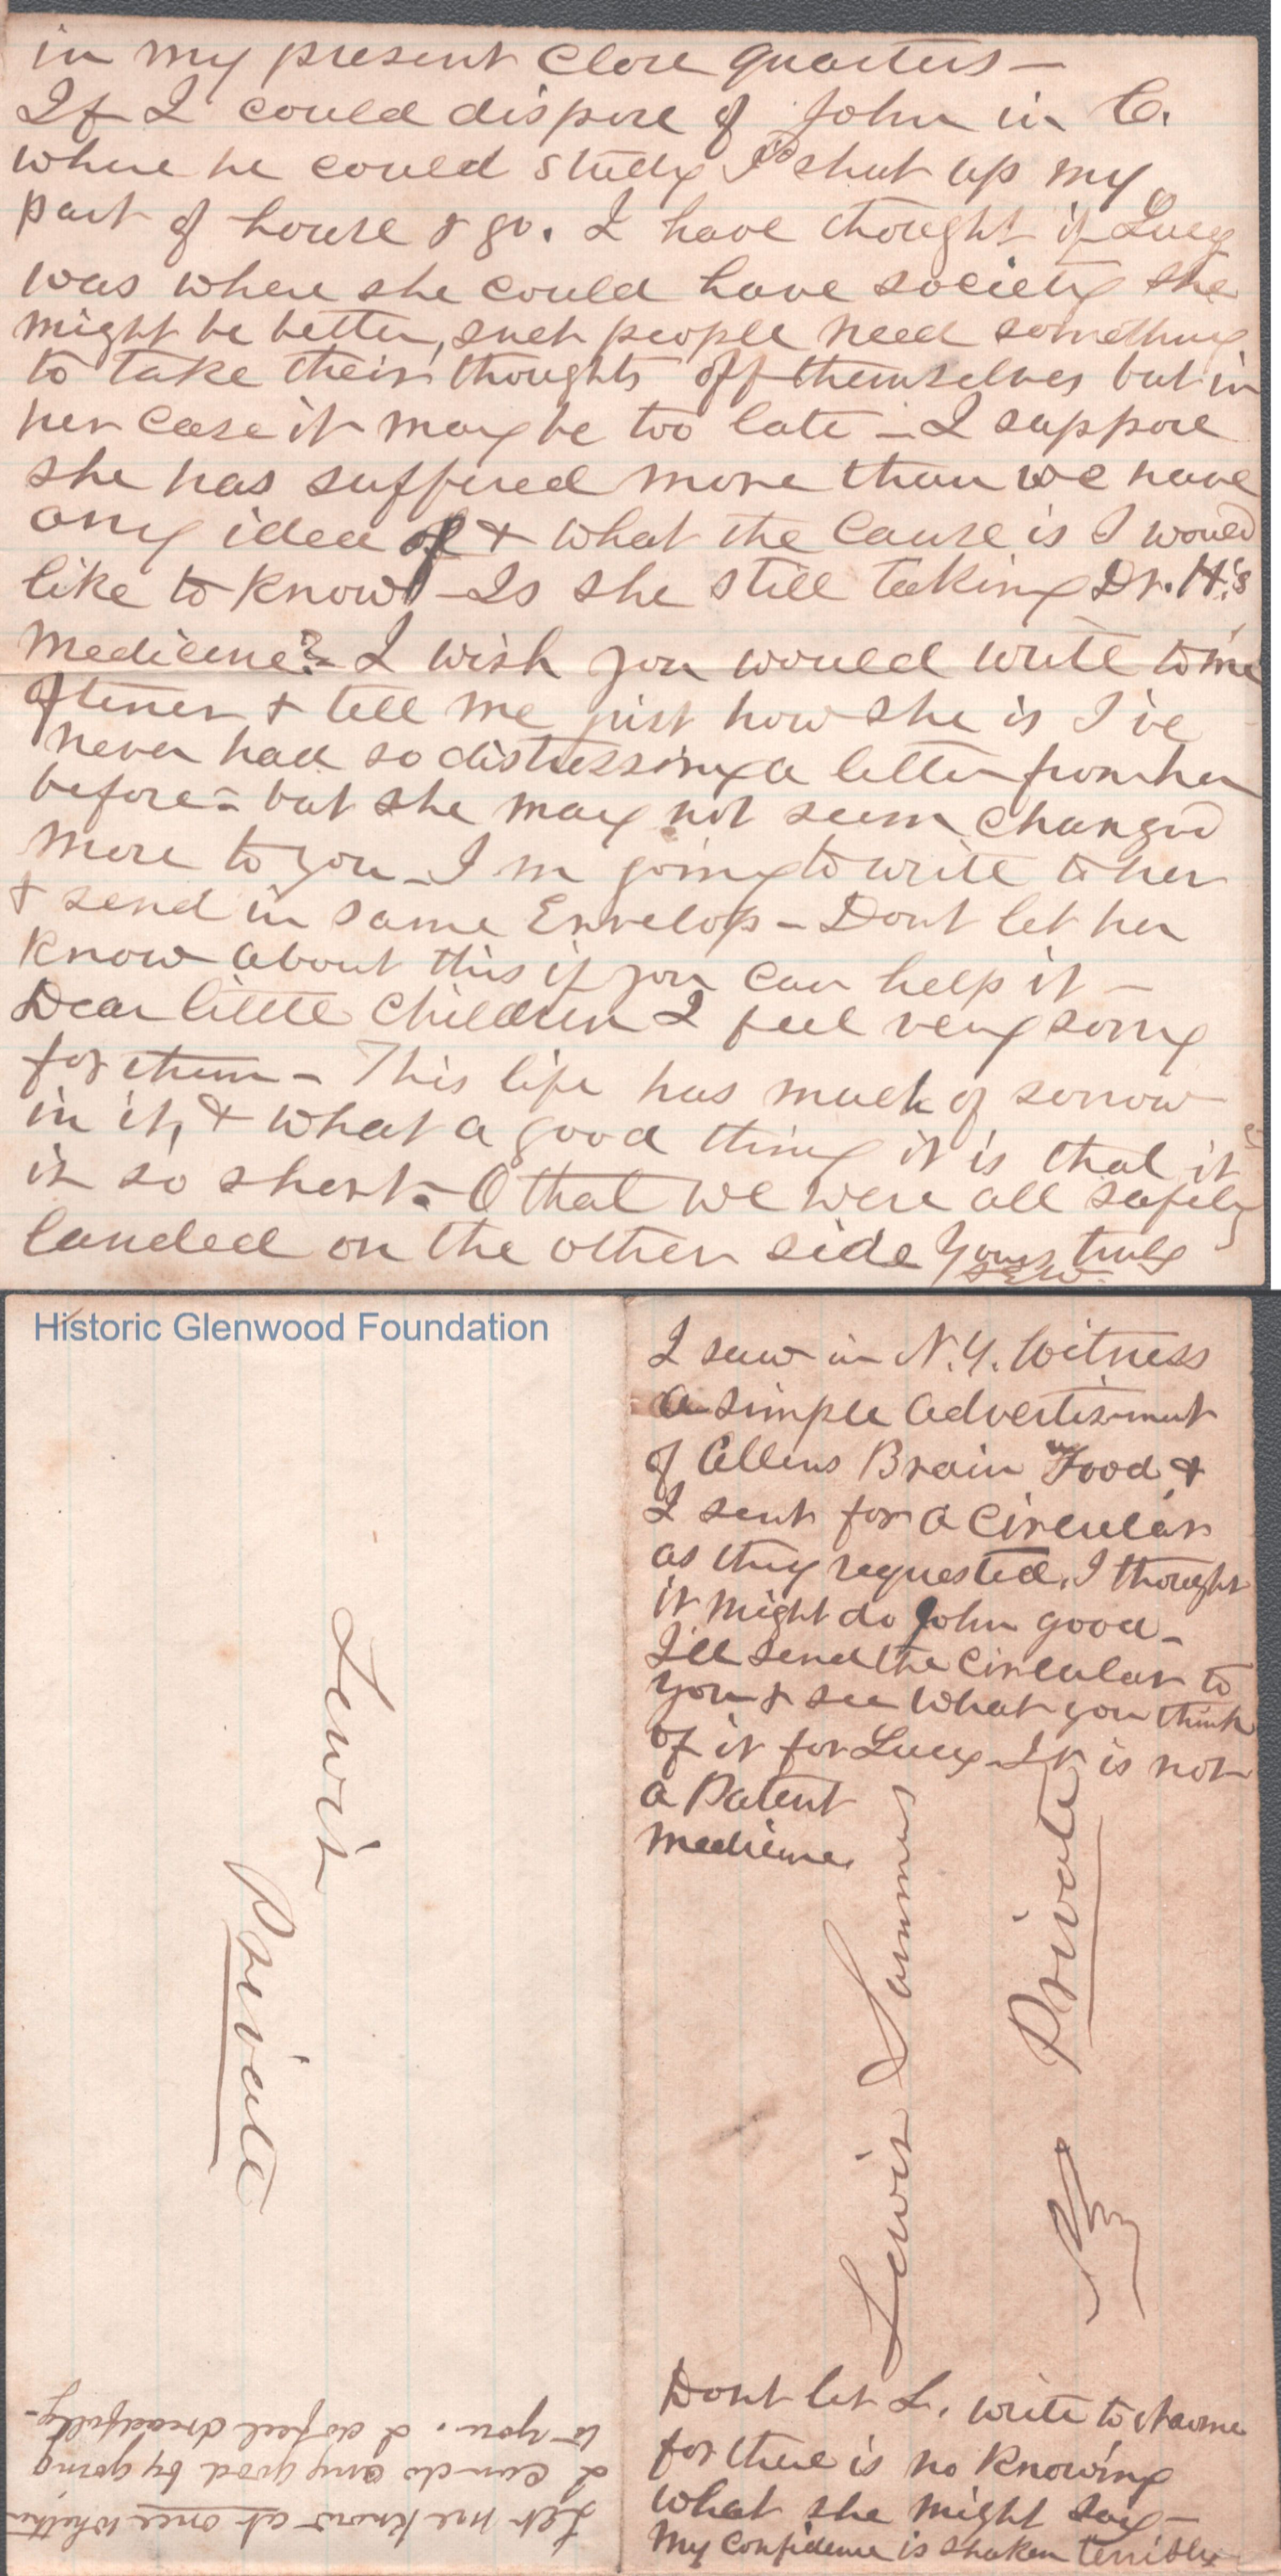 in my present close quarters —
If I could dispose of John in C.
where he could study I'd shut up my
part of house & go. I have thought if Lucy
was where she could have society she
might be better, such people need something
to take their thoughts off themselves but in
her case it may be too late — I suppose
she has suffered more than we have
any idea of & what the cause is I would
like to know — Is she still taking Dr. H.'s
medicine? — I wish you would write to me
oftener & tell me just how she is I've
never had so distressing a letter from her
before — but she may not seem changed
more to you — I'm going to write to her
& send in same Envelop — Dont let her
know about this if you can help it —
Dear little children I feel very sorry
for them — This life has much of sorrow
in it, & what a good thing it is that it
is so short. — O that we were all safely
landed on the other side Yours truly
Historic Glenwood Foundation
Lewis
Private
Let me know at once whether
I can do any good by going
to you. I do feel dreadfully —
I saw in N.Y. Witness
a simple advertisment
of Allens Brain Food, &
I sent for a Circular
as they requested. I thought
it might do John good —
I'll send the Circular to
you & see what you think
of it for Lucy — It is not
a Patent
medicine.
Lewis Sammus
Private
Dont let L. write to
for there is no knowing
what she might say —
My Confidence is shaken terribly